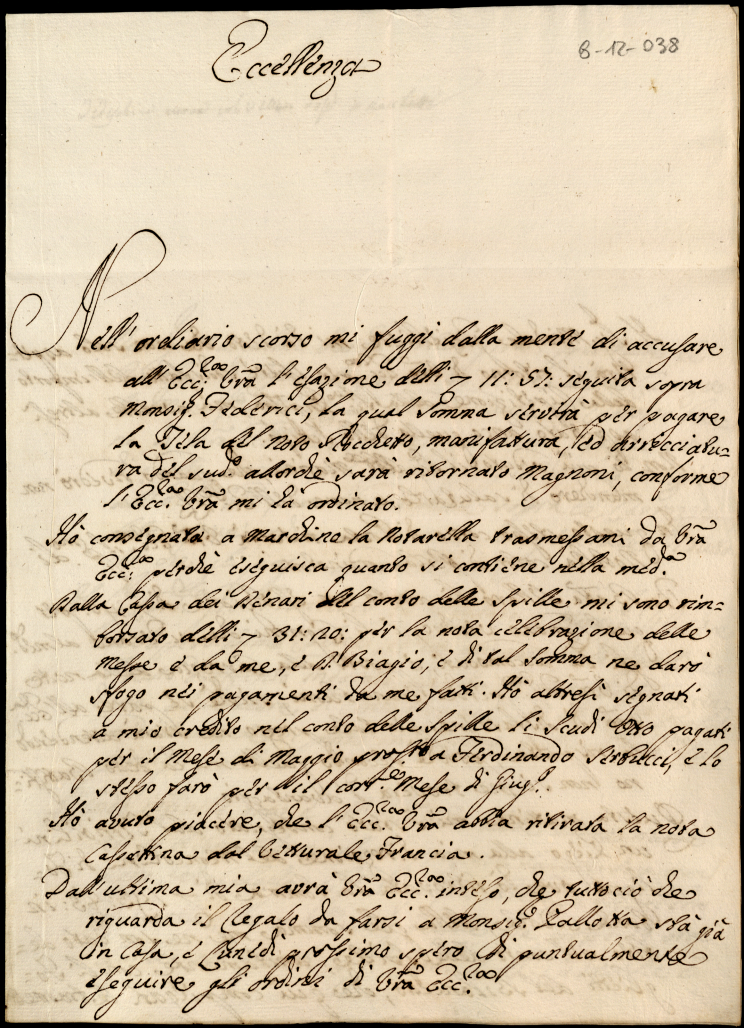 8-12-038
Eccellenza
Nell' ordinario scorso mi fuggì dalla mente di accusare
all' Ecc:za Vrã l' esazione delli 7 11: 57: seguita sopra
Monsig. Federici, la qual somma servirà per pagare
la Tela del noto Rocchetto, manifattura, ed arricciatu=
ra del sud.o allorchè sarà ritornato Magnoni, conforme
l' Ecc.za Vrã mi hà ordinato.
Hò consegnata a Marchino la Notarella trasmessami da Vrã
Ecc:za perchè eseguisca quanto si contiene nella med.a
Dalla Cassa dei Denari del conto delle Spille mi sono rim=
borsato delli 7 31: 20: per la nota celebrazione delle
Messe e da me, e D. Biagio, e di tal somma ne darò
sfogo nei pagamenti da me fatti. Hò altresì segnati
a mio credito nel conto delle Spille li Scudi Otto pagati
per il Mese di Maggio pross.o a Ferdinando, e lo
stesso farò per il corr.e Mese di Giug.o
Hò avuto piacere, che l' Ecc.za Vrã abbia ritirata la nota
Cassettina dal Vetturale Francia.
Dall' ultima mia avrà Vrã Ecc.za inteso, che tuttociò che
riguarda il Regalo da farsi a Monsig.r Pallotta stà già
in Casa, e Lunedì prossimo spero di puntualmente
eseguire gli ordini di Vrã Ecc.za